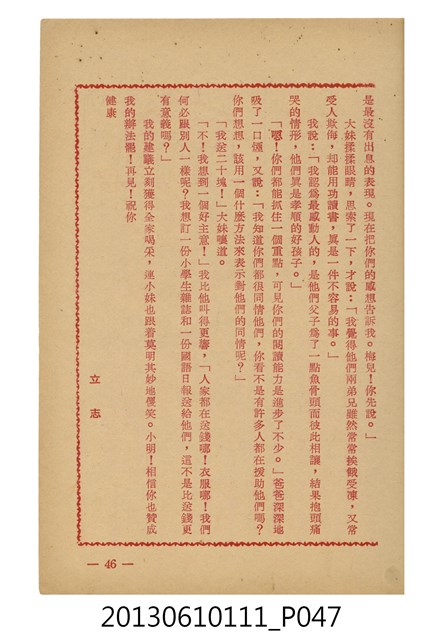 是最沒有出息的表現。現在把你們的感想告訴我。梅兒！你先說。」
大妹揉揉眼睛，思索了一下，才說：「我覺得他們兩弟兄雖然常常挨餓受凍，又常
受人欺侮，却能用功讀書，眞是一件不容易的事。」
我說：「我認爲最感動人的，是他們父子爲了一點魚骨頭而彼此相讓，結果抱頭痛
哭的情形，他們眞是孝順的好孩子。」
「嗯！你們都能抓住一個重點，可見你們的閱讀能力是進步了不少。」爸爸深深地
吸了一口煙，又說：「我知道你們都很同情他們，你看不是有許多人都在援助他們嗎？
你們想想，該用一個什麼方法來表示對他們的同情呢？」
「我送二十塊！」大妹嚷道。
「不！我想到一個好主意！」我比他叫得更響，「人家都在送錢哪！衣服哪！我們
何必跟別人一樣呢？我想訂一份小學生雜誌和一份國語日報送給他們，這不是比送錢更
有意義嗎？」
我的建議立刻獲得全家喝采，連小妹也跟着莫明其妙地優笑。小明！相信你也贊成
我的辦法罷！再見！祝你
健康
立志
— 46 —
20130610111_P047